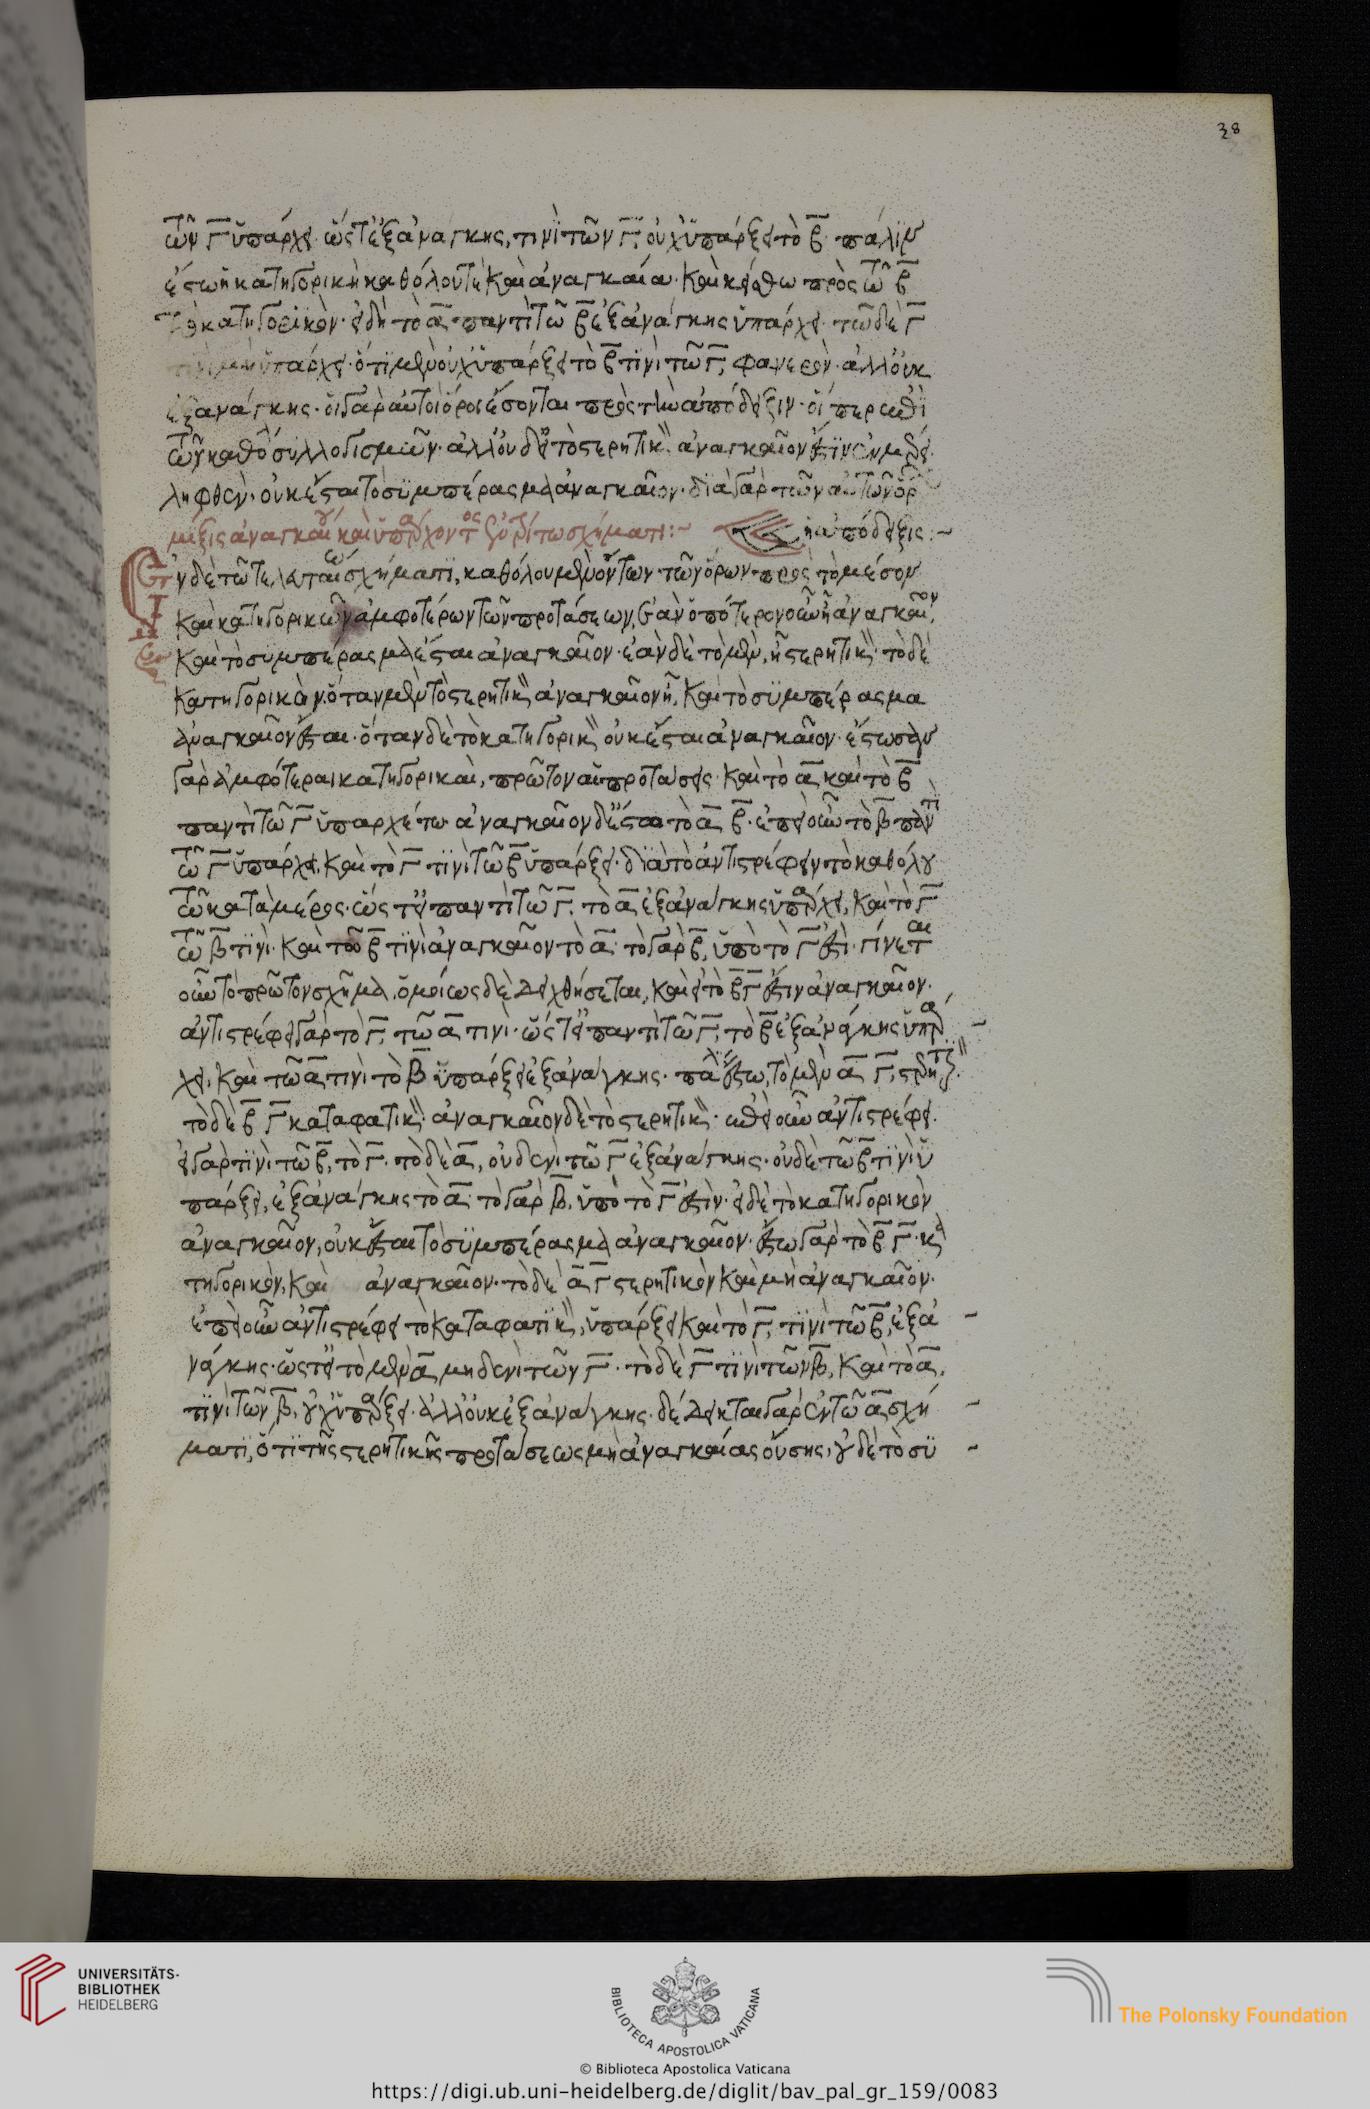 38
τῶν Γ ὑπάρχει. ὥστ' ἐξ ἀνάγκης, τινὶ τῶν Γ, οὐχ ὑπάρξει τὸ Β. πάλιν
ἔστω ἡ κατηγορικὴ καθόλου τὲ καὶ ἀναγκαία. καὶ κείσθω πρὸς τῶ Β
τὸ κατηγορικὸν. εἰ δὴ τὸ Α παντὶ τῶ Β ἐξ ἀνάγκης ὑπάρχει. τῶ δὲ Γ
τινὶ μὴ ὑπάρχει. ὅτι μὲν οὐχ ὑπάρξει τὸ Β τινὶ τῶ Γ, φανερὸν. ἀλλ' οὐκ
ἐξ ἀνάγκης. οἱ γὰρ αὐτοὶ ὅροι ἔσονται πρὸς τὴν ἀπόδειξιν. οἵπερ ἐπὶ
τῶν καθόλου συλλογισμῶν. ἀλλ' οὐδ' εἰ τὸ στερητικὸν ἀναγκαῖον ἐστὶν ἐν μέρει
ληφθὲν. οὐκ ἔσται τὸ συμπέρασμα ἀναγκαῖον. διὰ γὰρ τῶν αὐτῶν ὅρων
μίξις ἀναγκαίου καὶ ὑπάρχοντος ἐν τρίτω σχήματι:~ ἡ ἀπόδειξις:~
Ἐν δὲ τῶ τελευταίω σχήματι, καθόλου μὲν ὄντων τῶν ὅρων πρὸς τὸ μέσον
καὶ κατηγορικῶν ἀμφοτέρων τῶν προτάσεων, ἐὰν ὁπότερονοῦν ἢ ἀναγκαῖον,
καὶ τὸ συμπέρασμα ἔσται ἀναγκαῖον. ἐὰν δὲ τὸ μὲν, ἦ στερητικὸν. τὸ δὲ
κατηγορικὸν. ὅταν μὲν τὸ στερητικὸν ἀναγκαῖον ἦ, καὶ τὸ συμπέρασμα
ἀναγκαῖον ἔσται. ὅταν δὲ τὸ κατηγορικὸν οὐκ ἔσται ἀναγκαῖον. ἔστωσαν
γὰρ ἀμφότεραι κατηγορικαὶ, πρῶτον αἱ προτάσεις. καὶ τὸ Α καὶ τὸ Β
παντὶ τῶ Γ ὑπαρχέτω. ἀναγκαῖον δ' ἔστω τὸ Α Β. ἐπεὶ οὖν τὸ Β παντὶ
τῶ Γ ὑπάρχει, καὶ τὸ Γ τινὶ τῶ Β ὑπάρξει. διὰ τὸ ἀντιστρέφειν τὸ καθόλου
τῶ κατὰ μέρος. ὥστ' εἰ παντὶ τῶ Γ, τὸ Α ἐξ ἀνάγκης ὑπάρχει, καὶ τὸ Γ
τῶ Β τινὶ. καὶ τῶ Β τινὶ ἀναγκαῖον τὸ Α. τὸ γὰρ Β, ὑπὸ τὸ Γ ἐστὶ. γίνεται
οὖν τὸ πρῶτον σχῆμα, ὁμοίως δὲ δειχθήσεται, καὶ εἰ τὸ Β Γ ἐστὶν ἀναγκαῖον.
ἀντιστρέφει γὰρ τὸ Γ, τῶ Α τινὶ. ὥστ' εἰ παντὶ τῶ Γ, τὸ Β ἐξ ἀνάγκης ὑπάρ
χει, καὶ τῶ Α τινὶ τὸ Β ὑπάρξει ἐξ ἀνάγκης. πάλιν ἔστω, τὸ μὲν Α Γ, στερητικὸν.
τὸ δὲ Β Γ καταφατικὸν. ἀναγκαῖον δὲ τὸ στερητικὸν. ἐπεὶ οὖν ἀντιστρέφει.
εἰ γὰρ τινὶ τῶ Β, τὸ Γ. τὸ δὲ Α, οὐδενὶ τῶ Γ ἐξ ἀνάγκης. οὐδὲ τῶ Β τινὶ ὑ
πάρξει, ἐξ ἀνάγκης τὸ Α. τὸ γὰρ Β, ὑπὸ τὸ Γ ἐστὶν. εἰ δὲ τὸ κατηγορικὸν
ἀναγκαῖον, οὐκ ἔσται τὸ συμπέρασμα ἀναγκαῖον. ἔστω γὰρ τὸ Β Γ. κα
τηγορικὸν, καὶ ἀναγκαῖον. τὸ δὲ Α Γ στερητικὸν καὶ μὴ ἀναγκαῖον.
ἐπεὶ οὖν ἀντιστρέφει τὸ καταφατικὸν, ὑπάρξει καὶ τὸ Γ, τινὶ τῶ Β, ἐξ ἀ
νάγκης. ὥστ' εἰ τὸ μὲν Α μηδενὶ τῶν Γ. τὸ δὲ Γ τινὶ τῶν Β, καὶ τὸ Α,
τινὶ τῶν Β, οὐχ ὑπάρξει. ἀλλ' οὐκ ἐξ ἀνάγκης. δέδεικται γὰρ ἐν τῶ Α σχή
ματι, ὅτι τῆς στερητικῆς προτάσεως μὴ ἀναγκαίας οὔσης, οὐδὲ τὸ συ
UNIVERSITÄTS-
BIBLIOTHEK
HEIDELBERG
BIBLIOTECA APOSTOLICA VATICANA
The Polonsky Foundation
© Biblioteca Apostolica Vaticana
https://digi.ub.uni-heidelberg.de/diglit/bav_pal_gr_159/0083